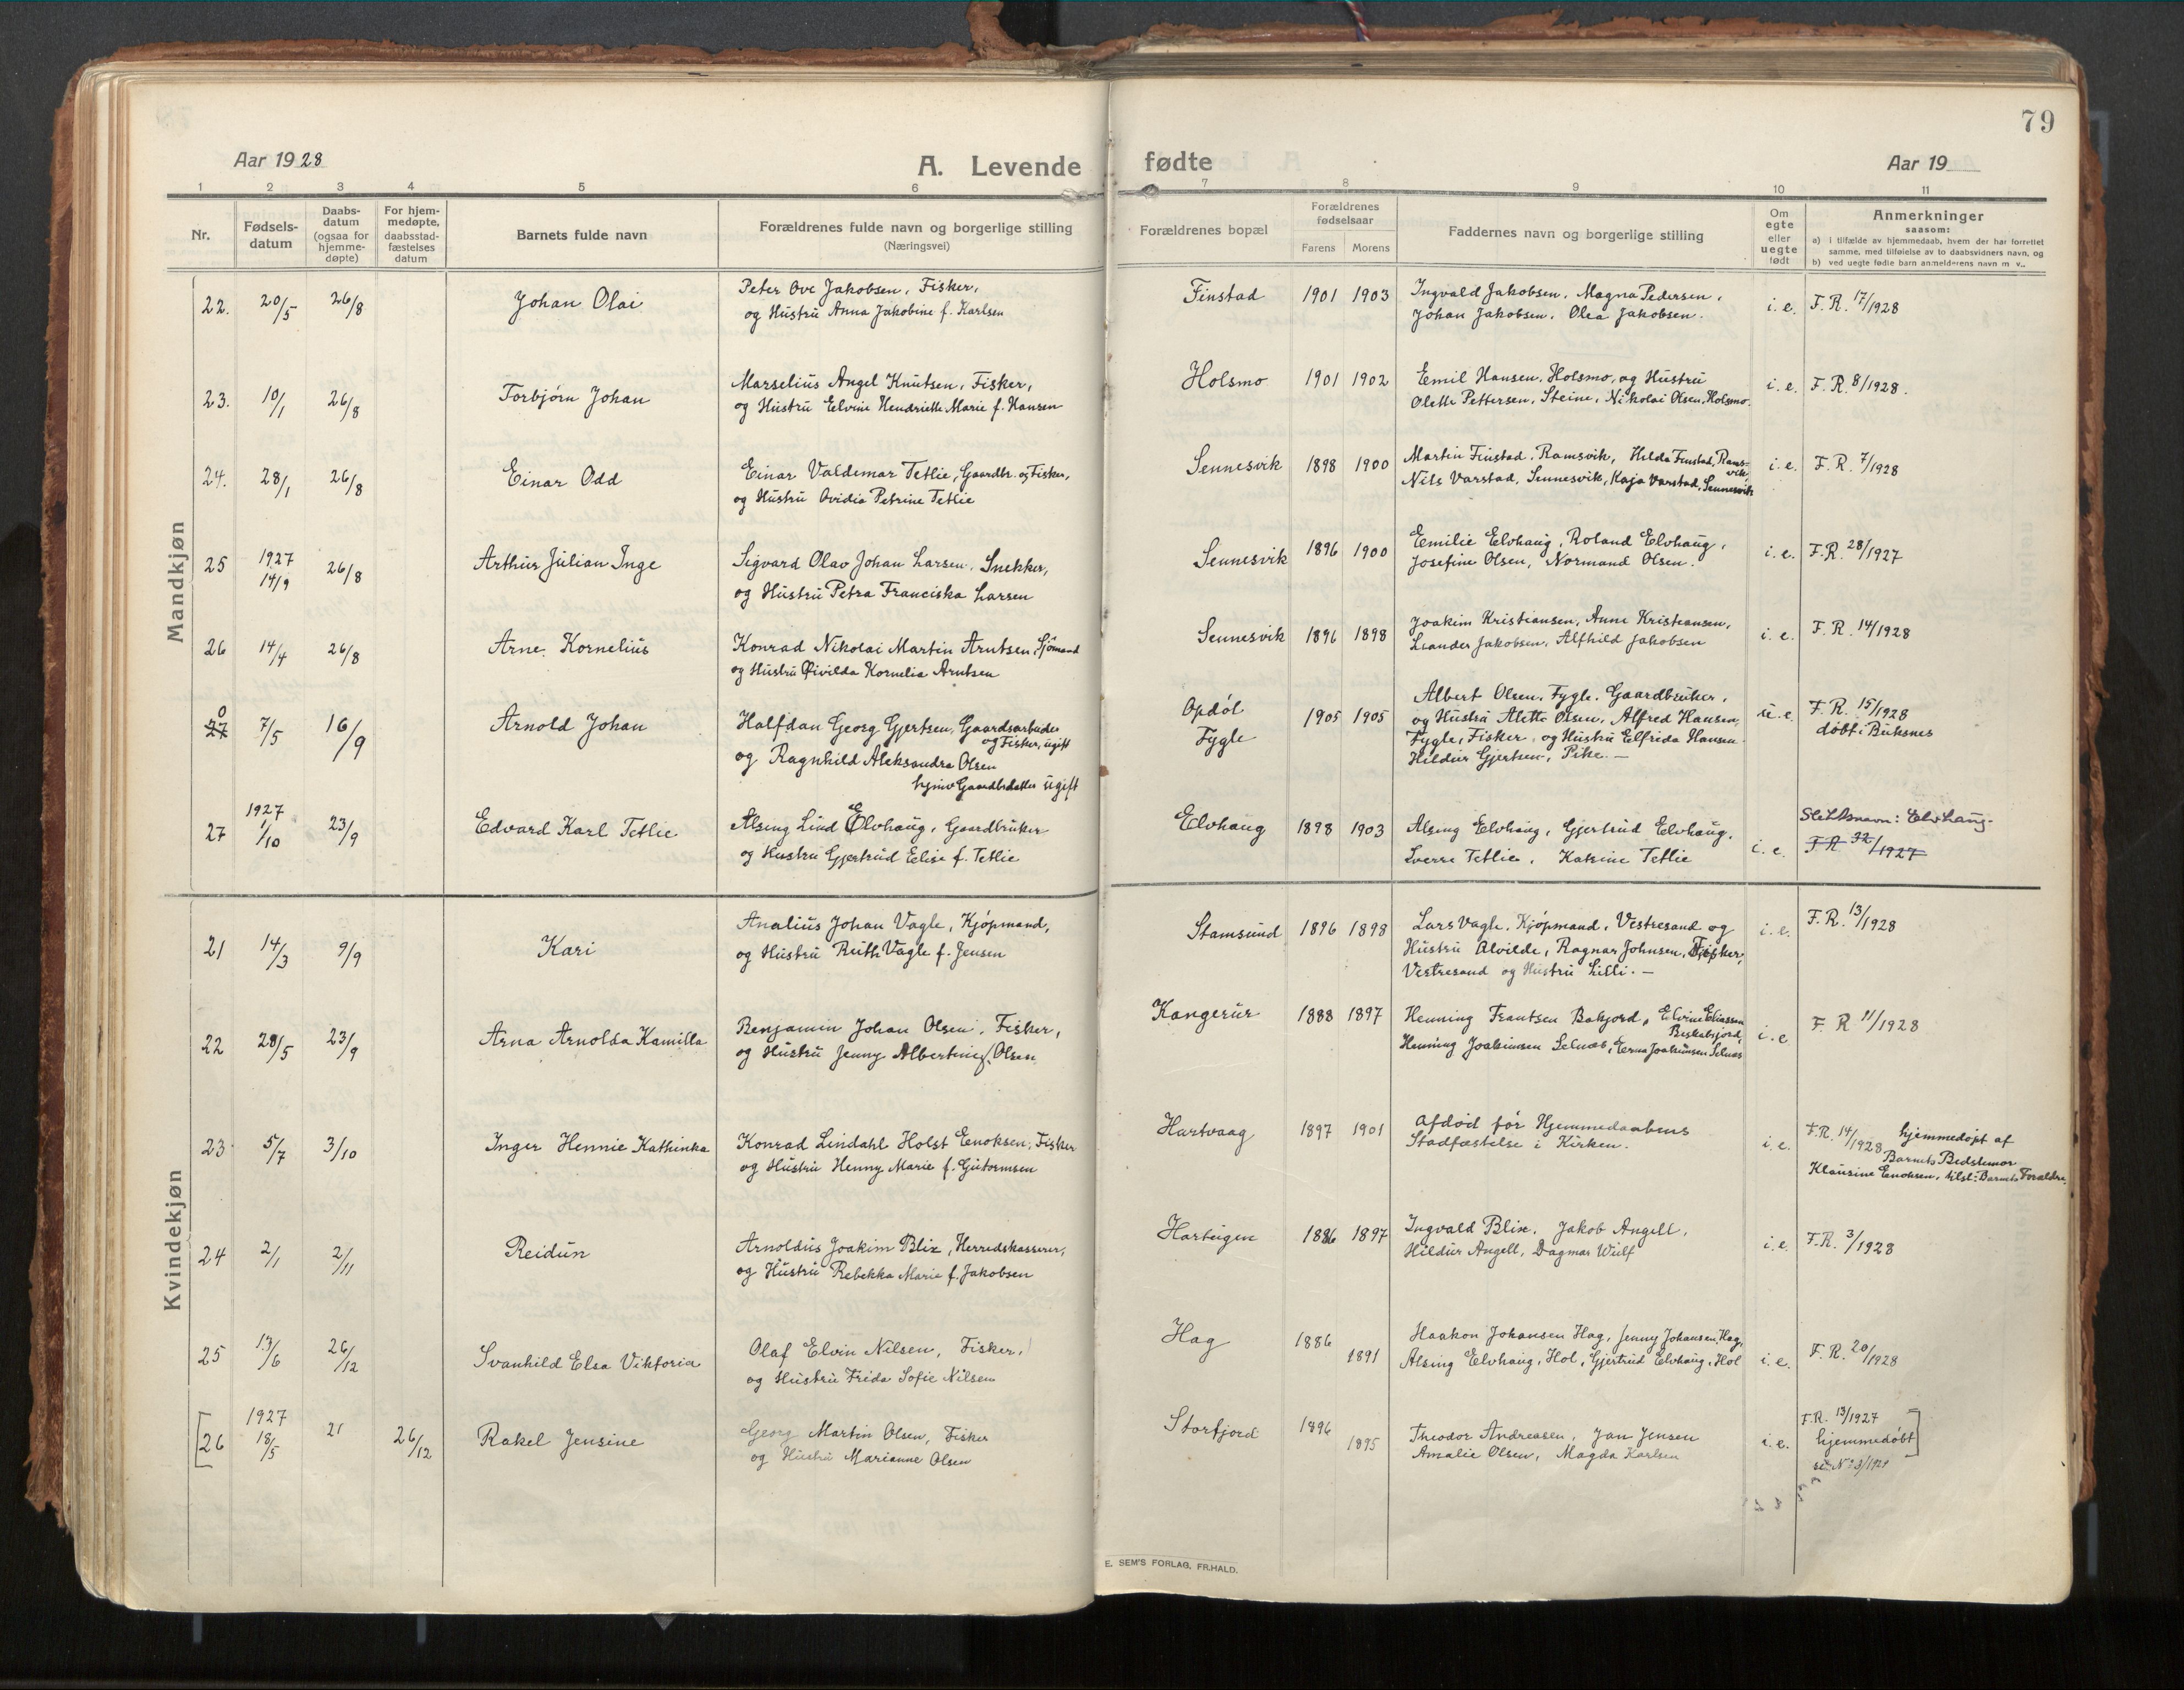 79
Aar 1928
A. Levende fødte
Aar 19
1 2 3 4 5 6 7 8 9 10 11
Nr.
Fødsels-
datum
Daabs-
datum
(ogsaa for
hjemme-
døpte)
For hjem-
medøpte,
daabsstad-
fæstelses
datum
Barnets fulde navn
Forældrenes fulde navn og borgerlige stilling
(Næringsvei)
Forældrenes bopæl
Forældrenes
fødselsaar
Farens Morens
Faddernes navn og borgerlige stilling
Om
egte
eller
uegte
født
Anmerkninger
saasom:
a) i tilfælde av hjemmedaab, hvem der har forrettet
samme, med tilføielse av to daabsvidners navn, og
b) ved uegte fødte barn anmelderens navn m. v..
Mandkjøn
22. 20/5 26/8 Johan Olai
Peter Ove Jakobsen, Fisker,
og Hustru Anna Jakobine f. Karlsen
Finstad 1901 1903
Ingvald Jakobsen, Magna Pedersen,
Johan Jakobsen. Olea Jakobsen.
i. e. F. R. 17/1928
23. 10/1 26/8 Torbjørn Johan
Marselius Angel Knutsen, Fisker,
og Hustru Elvine Hendriette Marie f. Hansen
Holsmo 1901 1902
Emil Hansen, Holsmo, og Hustru
Olette Pettersen, Steine, Nikolai Olsen, Holsmo.
i. e. F. R. 8/1928.
24. 28/1 26/8 Einar Odd
Einar Valdemar Tetlie, Gaardbr. og Fisker,
og Hustru Ovidia Petrine Tetlie
Sennesvik 1898 1900
Martin Finstad, Ramsvik, Hilda Finstad, Rams-
vik,
Nils Varstad, Sennesvik, Kaja Varstad, Sennesvik
i. e. F. R. 7/1928
25 1927 14/9 26/8 Arthur Julian Inge
Sigvard Olav Johan Larsen, Snekker,
og Hustru Petra Franciska Larsen
Sennesvik 1896 1900
Emilie Elvhaug, Roland Elvhaug,
Josefine Olsen, Normand Olsen.
i. e. F. R. 28/1927
26 14/4 26/8 Arne Kornelius
Konrad Nikolai Martin Arntsen, Sjømand
og Hustru Øivilda Kornelia Arntsen
Sennesvik 1896 1898
Joakim Kristiansen, Anne Kristiansen,
Leander Jakobsen, Alfhild Jakobsen
i. e. F. R. 14/1928
0
27 7/5 16/9 Arnold Johan
Halfdan Georg Gjertsen, Gaardsarbeider
og Fisker, ugift
og Ragnhild Aleksandra Olsen
hjmv Gaardbdatter ugift
Opdøl
Fygle
1905 1905
Albert Olsen, Fygle, Gaardbruker,
og Hustru Alette Olsen, Alfred Hansen,
Fygle, Fisker, og Hustru Elfrida Hansen.
Hildur Gjertsen, Pike. –
u. e. F. R. 15/1928
døbt i Buksnes
27 1927 1/10 23/9 Edvard Karl Tetlie
Alsing Lind Elvhaug, Gaardbruker
og Hustru Gjertrud Elise f. Tetlie
Elvhaug 1898 1903
Alsing Elvhaug, Gjertrud Elvhaug,
Sverre Tetlie, Katrine Tetlie
i. e. Slektsnavn: Elvhaug.
F R 32/1927
Kvindekjøn
21 14/3 9/9 Kari
Analius Johan Vagle, Kjøpmand,
og Hustru Ruth Vagle f. Jensen
Stamsund 1896 1898
Lars Vagle, Kjøpmand, Vestresand og
Hustru Alvilde, Ragnar Johnsen, Fisker,
Vestresand og Hustru Lilli. –
i. e. F. R. 13/1928
22 28/5 23/9 Arna Arnolda Kamilla
Benjamin Johan Olsen, Fisker,
og Hustru Jenny Albertine f. Olsen
Kangerur 1888 1897
Henning Frantsen Bakjord, Elvine Eliassen
Henning Joakimsen Selnæs, Erna Joakimsen Selnæs
i. e F. R 11/1928
23 5/7 3/10 Inger Hennie Kathinka
Konrad Lindahl Holst Enoksen, Fisker
og Hustru Henny Marie f. Gutormsen
Hartvaag 1897 1901
Afdød før Hjemmedaabens
Stadfæstelse i Kirken.
i. e. F. R. 14/1928 hjemmedøpt af
Barnets Bedstemor
Klausine Enoksen, tilst: Barnets Forældre.
24 2/1 2/11 Reidun
Arnoldus Joakim Blix, Herredskasserer,
og Hustru Rebekka Marie f. Jakobsen
Harteigen 1886 1897
Ingvald Blix, Jakob Angell,
Hildur Angell, Dagmar Wulf
i. e. F. R. 3/1928
25 13/6 26/12 Svanhild Elsa Viktoria
Olaf Elvin Nilsen, Fisker,
og Hustru Frida Sofie Nilsen
Hag 1886 1891
Haakon Johansen Hag, Jenny Johansen, Hag,
Alsing Elvhaug, Hol, Gjertrud Elvhaug, Hol
i. e. F. R. 20/1928
26 1927 18/5 21 26/12 Rakel Jensine
Georg Martin Olsen, Fisker
og Hustru Marianne Olsen
Storfjord 1896 1895
Theodor Andreasen, Jan Jensen
Amalie Olsen, Magda Karlsen
i. e. F. R. 13/1927
hjemmedøbt
E. SEM'S FORLAG, FR.HALD.